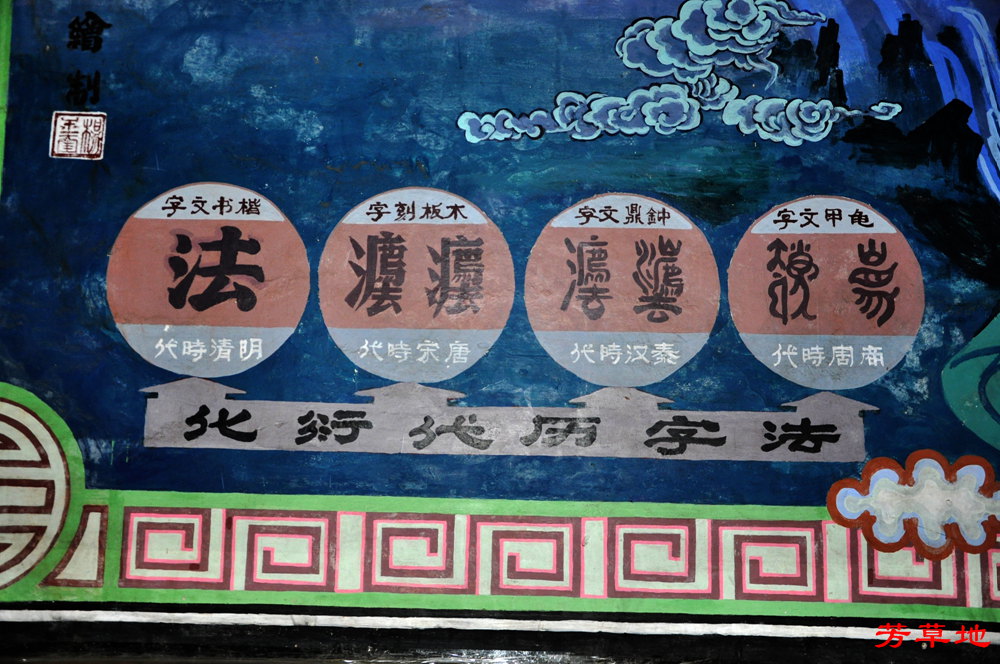 繪制
龟甲文字
商周時代
鈡鼎文字
秦汉時代
木板刻字
唐宋時代
楷书文字
法
明清時代
法字历代衍化
芳草地